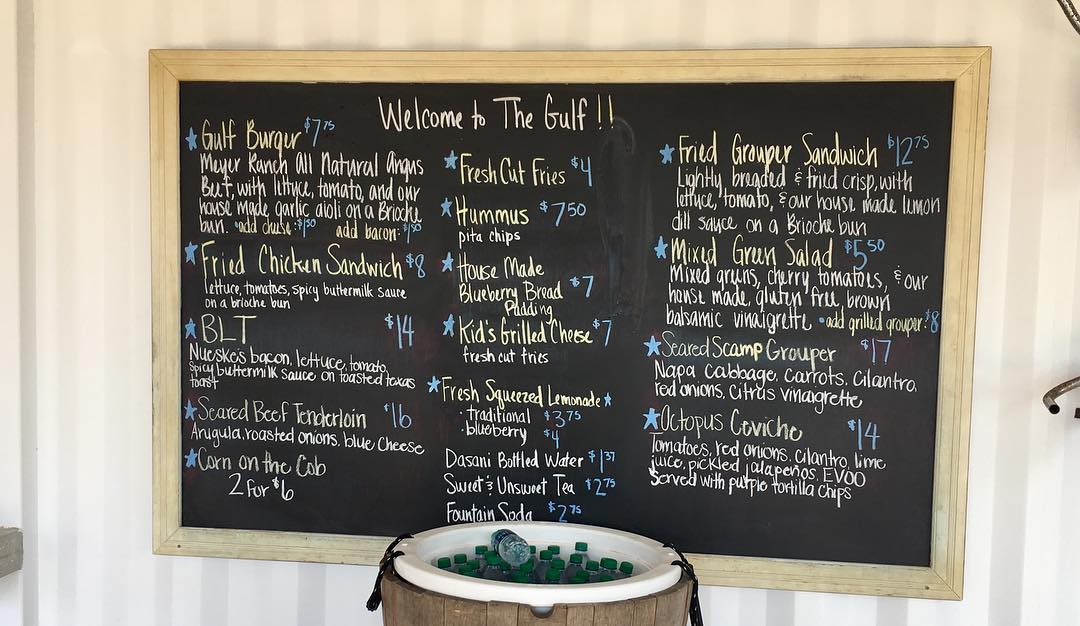 Welcome to The Gulf !!
Gulf Burger $7.75
Meyer Ranch All Natural Angus
Beef, with lettuce, tomato, and our
house made garlic aioli on a Brioche
bun. •add cheese: $1.50 add bacon: $1.50
Fried Chicken Sandwich $8
lettuce, tomatoes, spicy buttermilk sauce
on a brioche bun
BLT $14
Nueske's bacon, lettuce, tomato,
spicy buttermilk sauce on toasted texas
toast
Seared Beef Tenderloin $16
Arugula, roasted onions, blue cheese
Corn on the Cob
2 for $6
Fresh Cut Fries $4
Hummus $7.50
pita chips
House Made
Blueberry Bread $7
Pudding
Kid's Grilled Cheese $7
fresh cut fries
Fresh Squeezed Lemonade
• traditional $3.75
• blueberry $4
Dasani Bottled Water $1.37
Sweet & Unsweet Tea $2.75
Fountain Soda $2.75
Fried Grouper Sandwich $12.75
Lightly breaded & fried crisp, with
lettuce, tomato, & our house made lemon
dill sauce on a Brioche bun
Mixed Green Salad $5.50
Mixed greens, cherry tomatoes, & our
house made, gluten free, brown
balsamic vinaigrette •add grilled grouper: $8
Seared Scamp Grouper $17
Napa cabbage, carrots, cilantro,
red onions, citrus vinaigrette
Octopus Ceviche $14
Tomatoes, red onions, cilantro, lime
juice, pickled jalapeños, EVOO
Served with purple tortilla chips